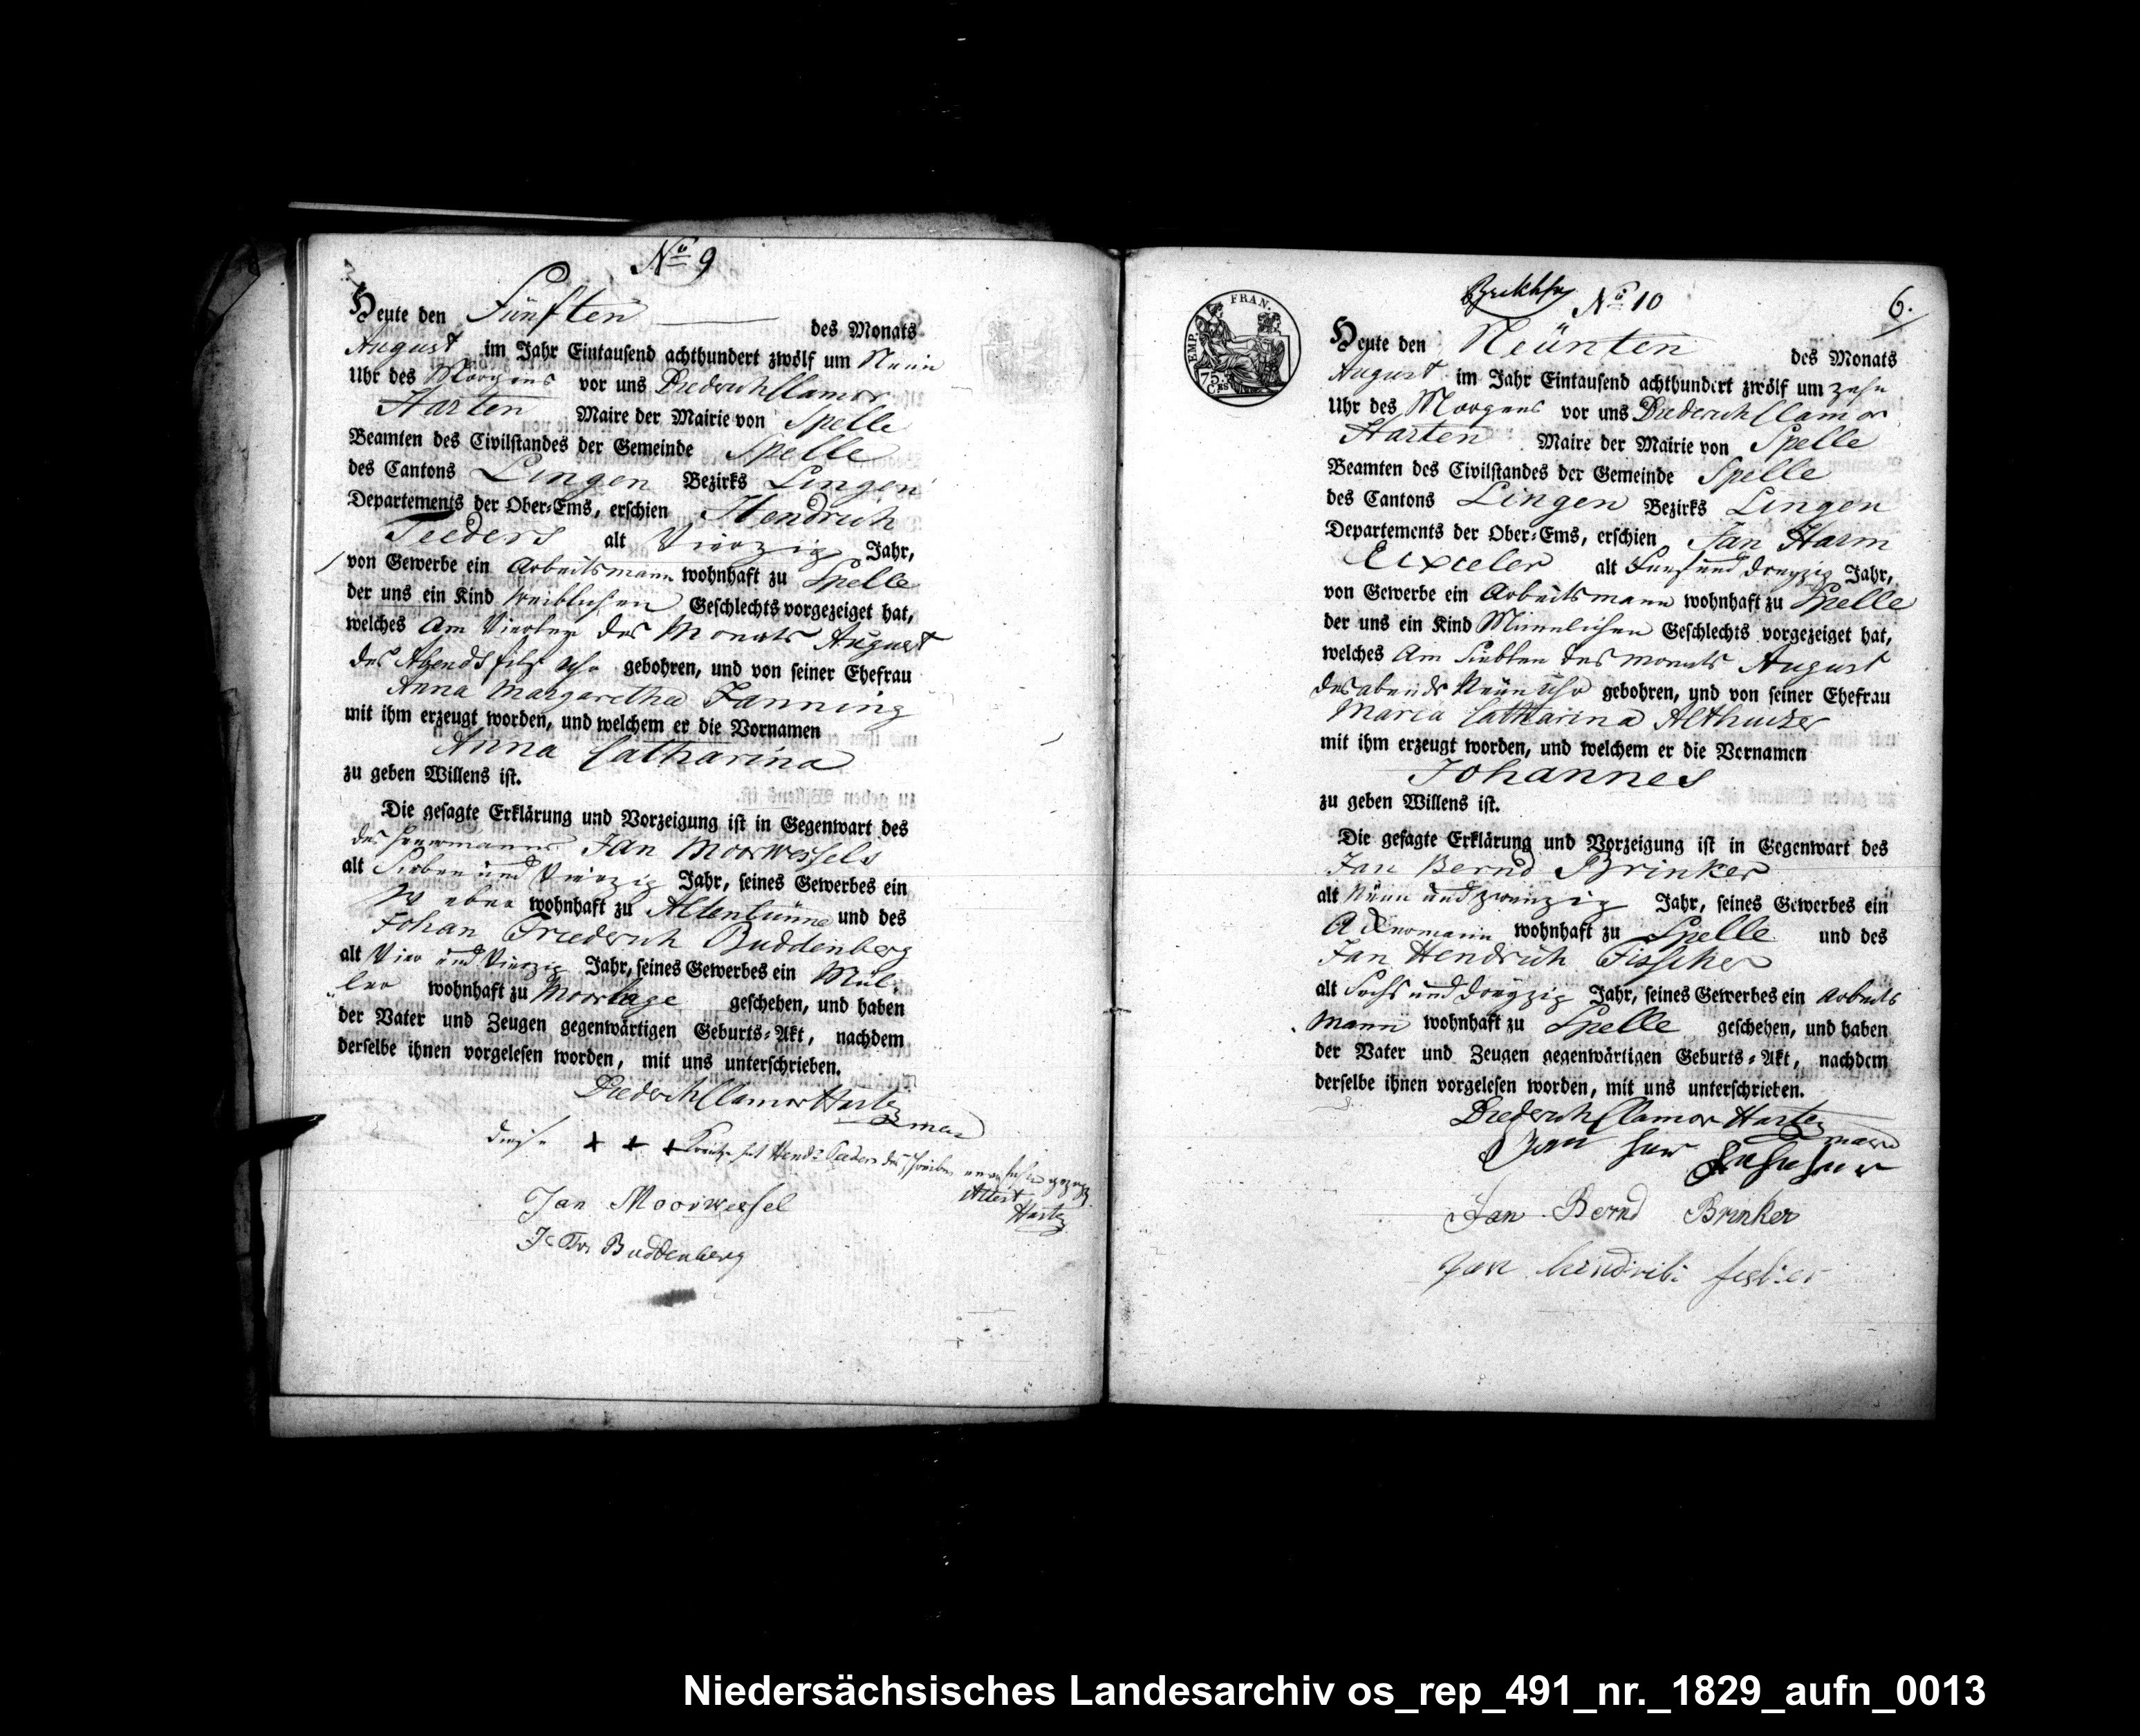 No 9
Heute den Fünften des Monats
August im Jahr Eintausend achthundert zwölf um Neun
Uhr des Morgens vor uns Diederich Clamor
Harten Maire der Mairie von Spelle
Beamten des Civilstandes der Gemeinde Spelle
des Cantons Lingen Bezirks Lingen
Departements der Ober-Ems, erschien Hendrich
Teeders alt Vierzig Jahr,
von Gewerbe ein Arbeitsmann wohnhaft zu Spelle
der uns ein Kind weiblichen Geschlechts vorgezeiget hat,
welches Am Vierten des Monats August
des Abends Uhr gebohren, und von seiner Ehefrau
Anna Margaretha Janning
mit ihm erzeugt worden, und welchem er die Vornamen
Anna Catharina
zu geben Willens ist.
Die gesagte Erklärung und Vorzeigung ist in Gegenwart des
des Jan Moorwessels
alt Sieben und Vierzig Jahr, seines Gewerbes ein
Weber wohnhaft zu Altenlünne und des
Johan Friederich Buddenberg
alt Vier und Vierzig Jahr, seines Gewerbes ein Mül-
ler wohnhaft zu Moorlage geschehen, und haben
der Vater und Zeugen gegenwärtigen Geburts-Akt, nachdem
derselbe ihnen vorgelesen worden, mit uns unterschrieben.
Diederich Clamor Harten
Diese + + + Kreutze hat Hend: Teeders des Schreibens
Attest
Harten
Jan Moorwessel
Buddenberg
FRAN.
EMP.
75
No 10
6.
Heute den Neünten des Monats
August im Jahr Eintausend achthundert zwölf um zehn
Uhr des Morgens vor uns Diederich Clamor
Harten Maire der Mairie von Spelle
Beamten des Civilstandes der Gemeinde Spelle
des Cantons Lingen Bezirks Lingen
Departements der Ober-Ems, erschien Jan Harm
alt Fünf und dreyzig Jahr,
von Gewerbe ein Arbeitsmann wohnhaft zu Spelle
der uns ein Kind Männlichen Geschlechts vorgezeiget hat,
welches Am Siebten des monats August
des abends Neün Uhr gebohren, und von seiner Ehefrau
Maria Catharina
mit ihm erzeugt worden, und welchem er die Vornamen
Johannes
zu geben Willens ist.
Die gesagte Erklärung und Vorzeigung ist in Gegenwart des
Jan Bernd Brinker
alt Neün und zwanzig Jahr, seines Gewerbes ein
Ackermann wohnhaft zu Spelle und des
Jan Hendrich Fisscher
alt Sechs und dreyzig Jahr, seines Gewerbes ein Arbeits
mann wohnhaft zu Spelle geschehen, und haben
der Vater und Zeugen gegenwärtigen Geburts-Akt, nachdem
derselbe ihnen vorgelesen worden, mit uns unterschrieben.
Diederich Clamor Harten
Jan
Jan Bernd Brinker
Jan
Niedersächsisches Landesarchiv os_rep_491_nr._1829_aufn_0013